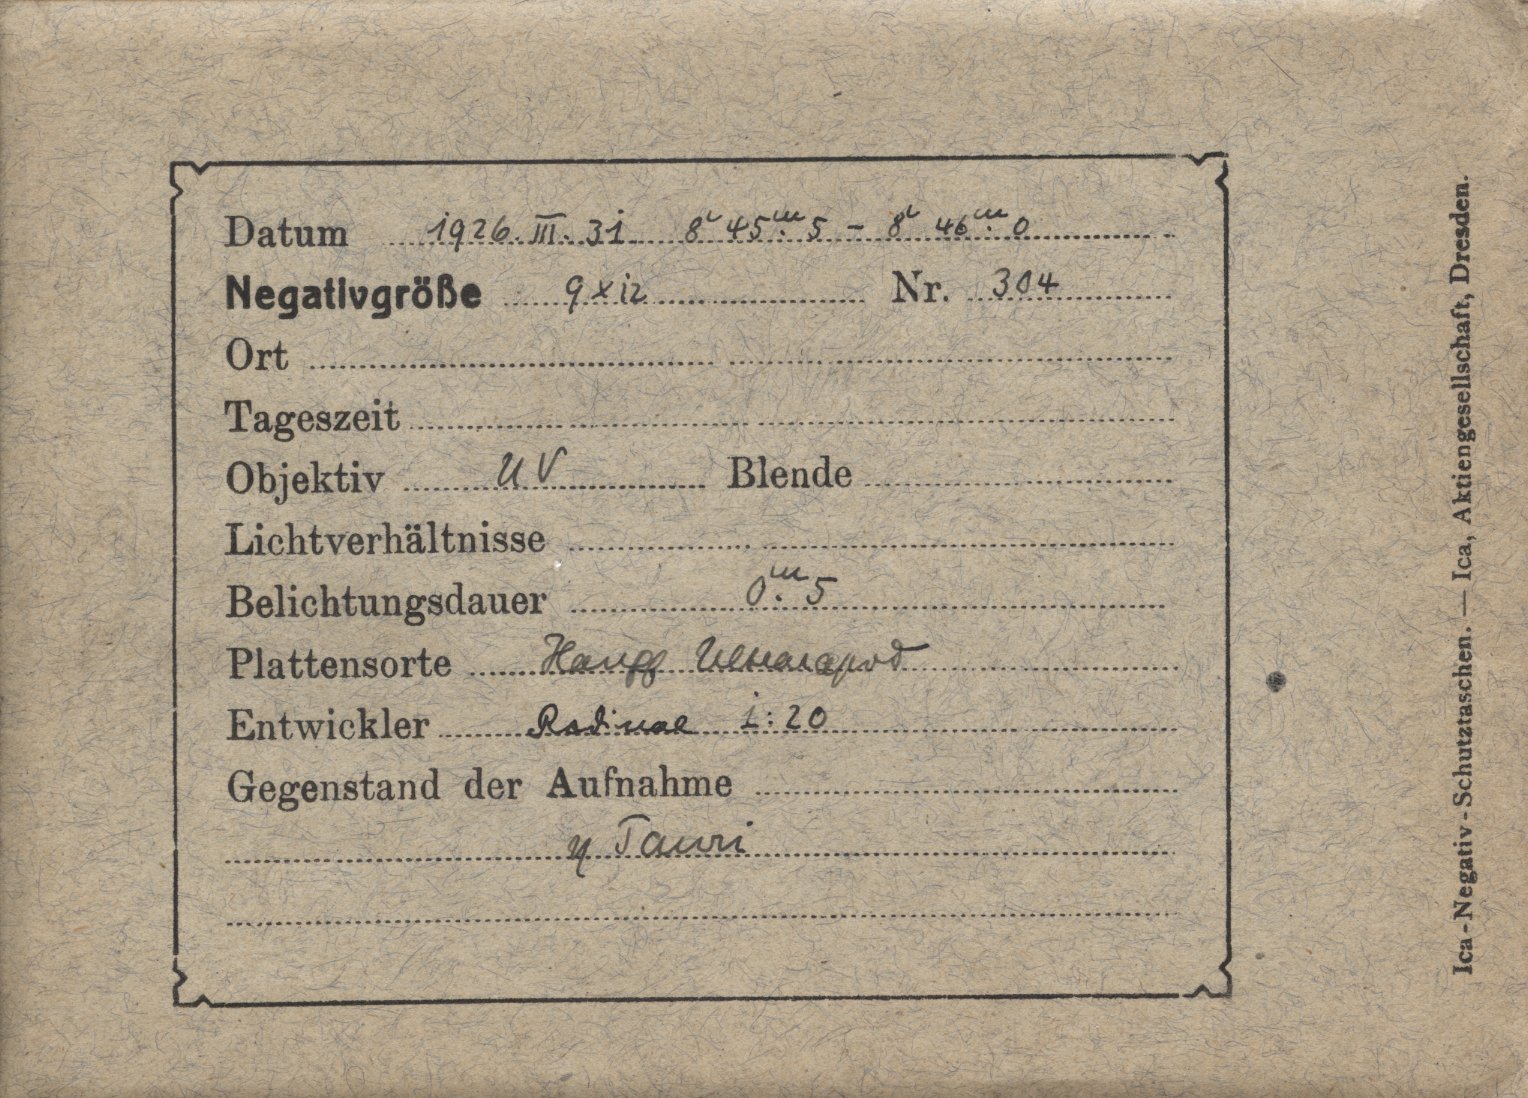 Datum 1926. III. 31 8ʰ 45ᵐ.5 – 8ʰ 46ᵐ.0
Negativgröße 9x12 Nr. 304
Ort
Tageszeit
Objektiv UV Blende
Lichtverhältnisse
Belichtungsdauer 0ᵐ.5
Plattensorte Hauff Ultrarapid
Entwickler Rodinal 1:20
Gegenstand der Aufnahme
η Tauri
Ica-Negativ-Schutztaschen. — Ica, Aktiengesellschaft, Dresden.